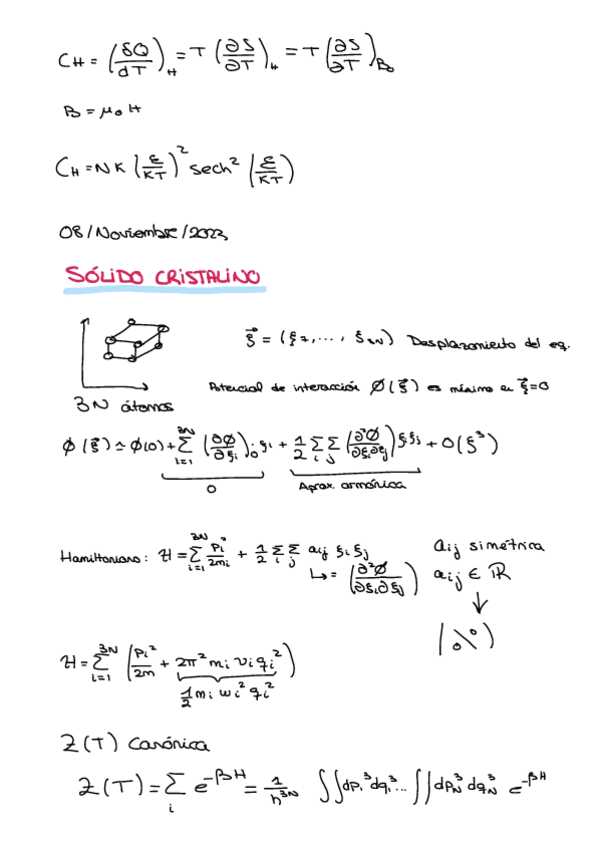 C_H = (δQ/dT)_H = T (∂S/∂T)_H = T (∂S/∂T)_B₀
B = μ₀H
C_H = NK (ε/KT)² sech² (ε/KT)
08/Noviembre/2023
SÓLIDO CRISTALINO
ξ⃗ = (ξ₁, ..., ξ₃ₙ) Desplazamiento del eq.
Potencial de interacción Ø(ξ⃗) es mínimo en ξ⃗=0
3N átomos
Ø(ξ⃗) ≃ Ø(0) + Σ_{i=1}^{3N} (∂Ø/∂ξᵢ)₀ · ξᵢ + 1/2 Σ_i Σ_j (∂²Ø/∂ξᵢ∂ξⱼ) ξᵢξⱼ + O(ξ³)
0 Aprox. armónica
Hamiltoniano: H = Σ_{i=1}^{3N} pᵢ²/2mᵢ + 1/2 Σ_i Σ_j aᵢⱼ ξᵢ ξⱼ aᵢⱼ simétrica
↳ = (∂²Ø/∂ξᵢ∂ξⱼ) aᵢⱼ ∈ ℝ
↓
(0\0)
H = Σ_{i=1}^{3N} (pᵢ²/2m + 2π² mᵢ νᵢ qᵢ²)
1/2 mᵢ wᵢ² qᵢ²
Z(T) Canónica
Z(T) = Σ_i e^{-βH} = 1/h^{3N} ∫∫dpᵢ³dqᵢ³... ∫∫dp_N³ dq_N³ e^{-βH}